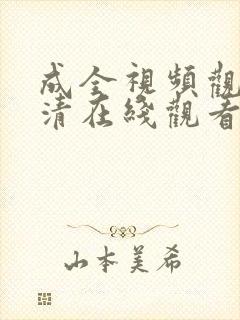 成全視頻觀
清在綫觀看
山本美希